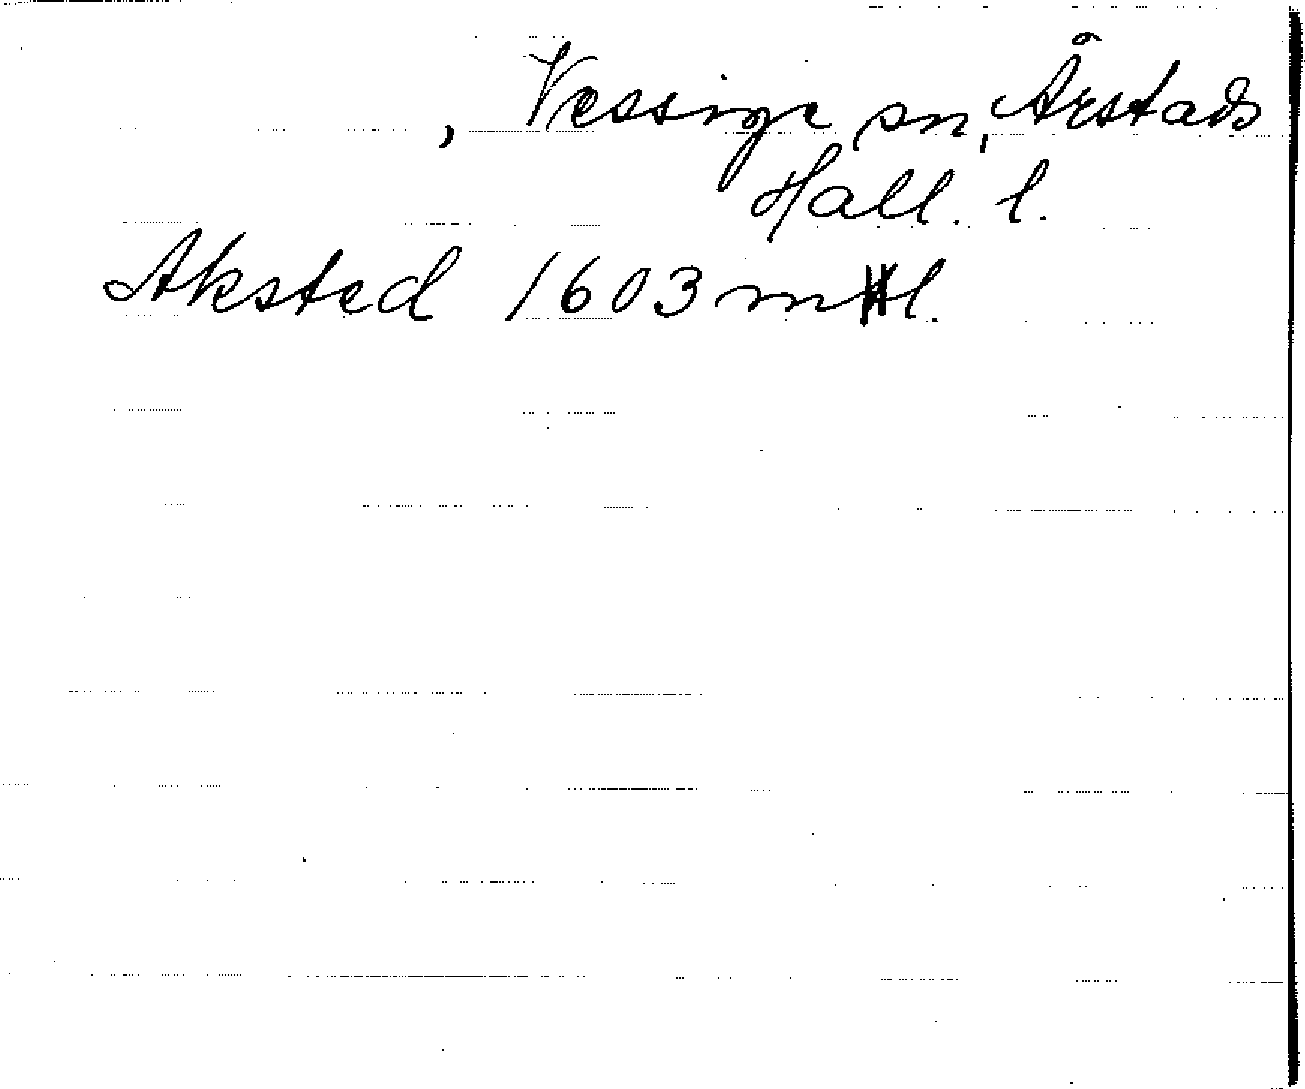 , Vessige sn, Årstads
Hall. l.
Aksted 1603 mtl.